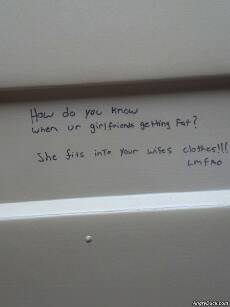 How do you know
when ur girlfriends getting Fat?
She fits into your wifes clothes!!!
LMFAO
AngryDuck.com